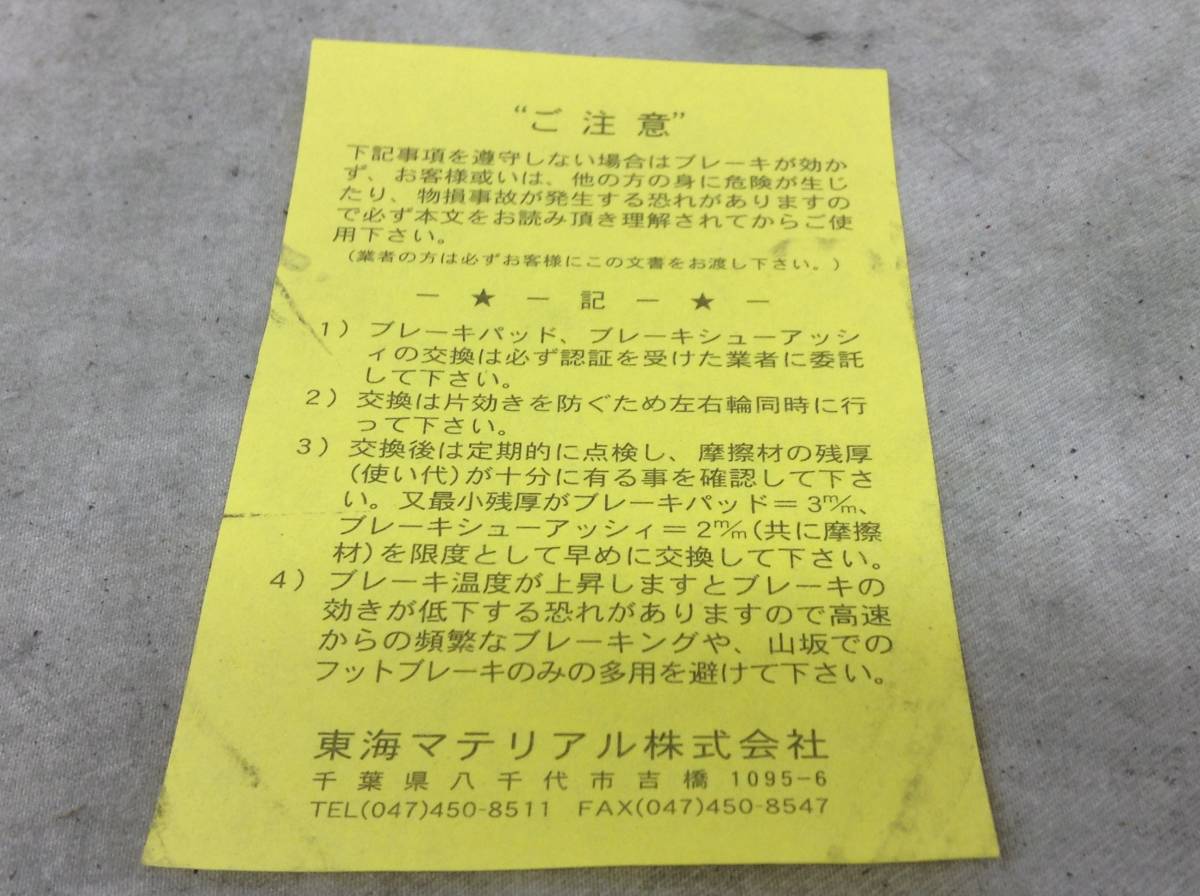 “ご注意”
下記事項を遵守しない場合はブレーキが効か
ず、お客様或いは、他の方の身に危険が生じ
たり、物損事故が発生する恐れがありますの
で必ず本文をお読み頂き理解されてからご使
用下さい。
（業者の方は必ずお客様にこの文書をお渡し下さい。）
－ ★ － 記 － ★ －
1）ブレーキパッド、ブレーキシューアッシ
ィの交換は必ず認証を受けた業者に委託
して下さい。
2）交換は片効きを防ぐため左右輪同時に行
って下さい。
3）交換後は定期的に点検し、摩擦材の残厚
(使い代)が十分に有る事を確認して下さ
い。又最小残厚がブレーキパッド＝3m/m、
ブレーキシューアッシィ＝2m/m(共に摩擦
材)を限度として早めに交換して下さい。
4）ブレーキ温度が上昇しますとブレーキの
効きが低下する恐れがありますので高速
からの頻繁なブレーキングや、山坂での
フットブレーキのみの多用を避けて下さい。
東海マテリアル株式会社
千葉県八千代市吉橋 1095-6
TEL(047)450-8511 FAX(047)450-8547